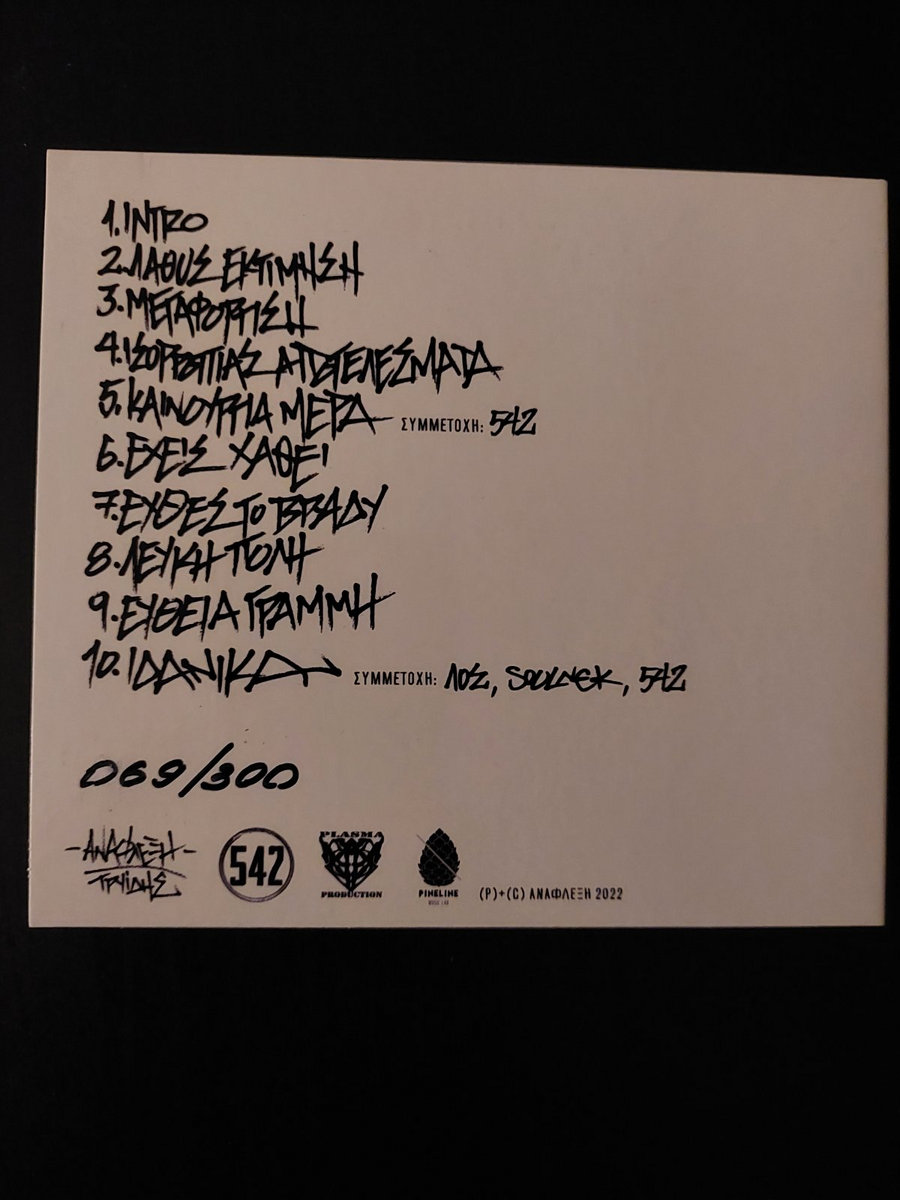 1. INTRO
2. ΛΑΘΟΣ ΕΚΤΙΜΗΣΗ
3. ΜΕΤΑΦΟΡΤΙΣΗ
4. ΙΣΟΡΡΟΠΙΑΣ ΑΠΟΤΕΛΕΣΜΑΤΑ
5. ΚΑΙΝΟΥΡΓΙΑ ΜΕΡΑ ΣΥΜΜΕΤΟΧΗ: 542
6. ΕΧΕΙΣ ΧΑΘΕΙ
7. ΕΧΘΕΣ ΤΟ ΒΡΑΔΥ
8. ΛΕΥΚΗ ΠΟΛΗ
9. ΕΥΘΕΙΑ ΓΡΑΜΜΗ
10. ΙΔΑΝΙΚΑ ΣΥΜΜΕΤΟΧΗ: ΛΟΣ, SOULNEK, 542
069/300
-ΑΝΑΦΛΕΞΗ-
542
PLASMA
PRODUCTION
PINELINE
(P)+(C) ΑΝΑΦΛΕΞΗ 2022